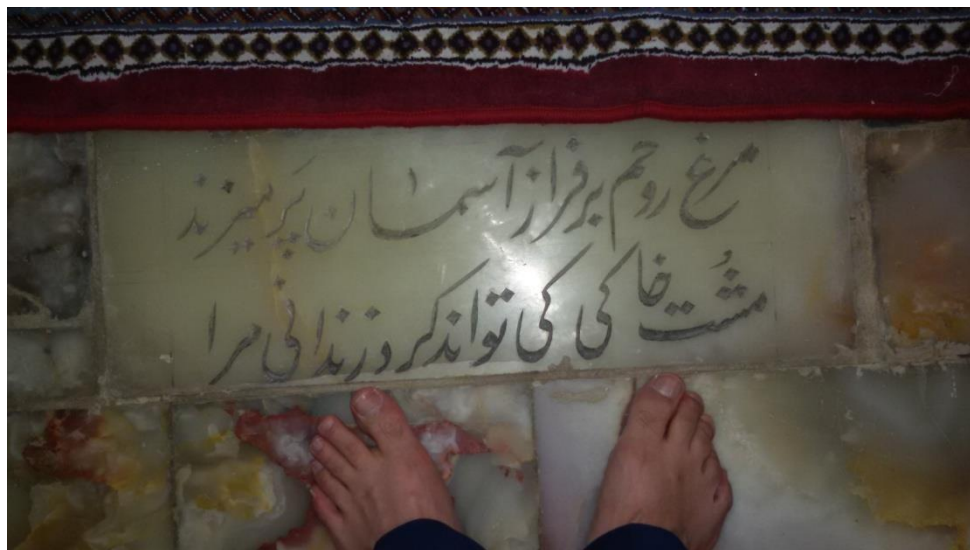 مرغ روحم بر فراز آسمان پَر میزند
مُشت خاکی کی تواند کرد زندانی مرا